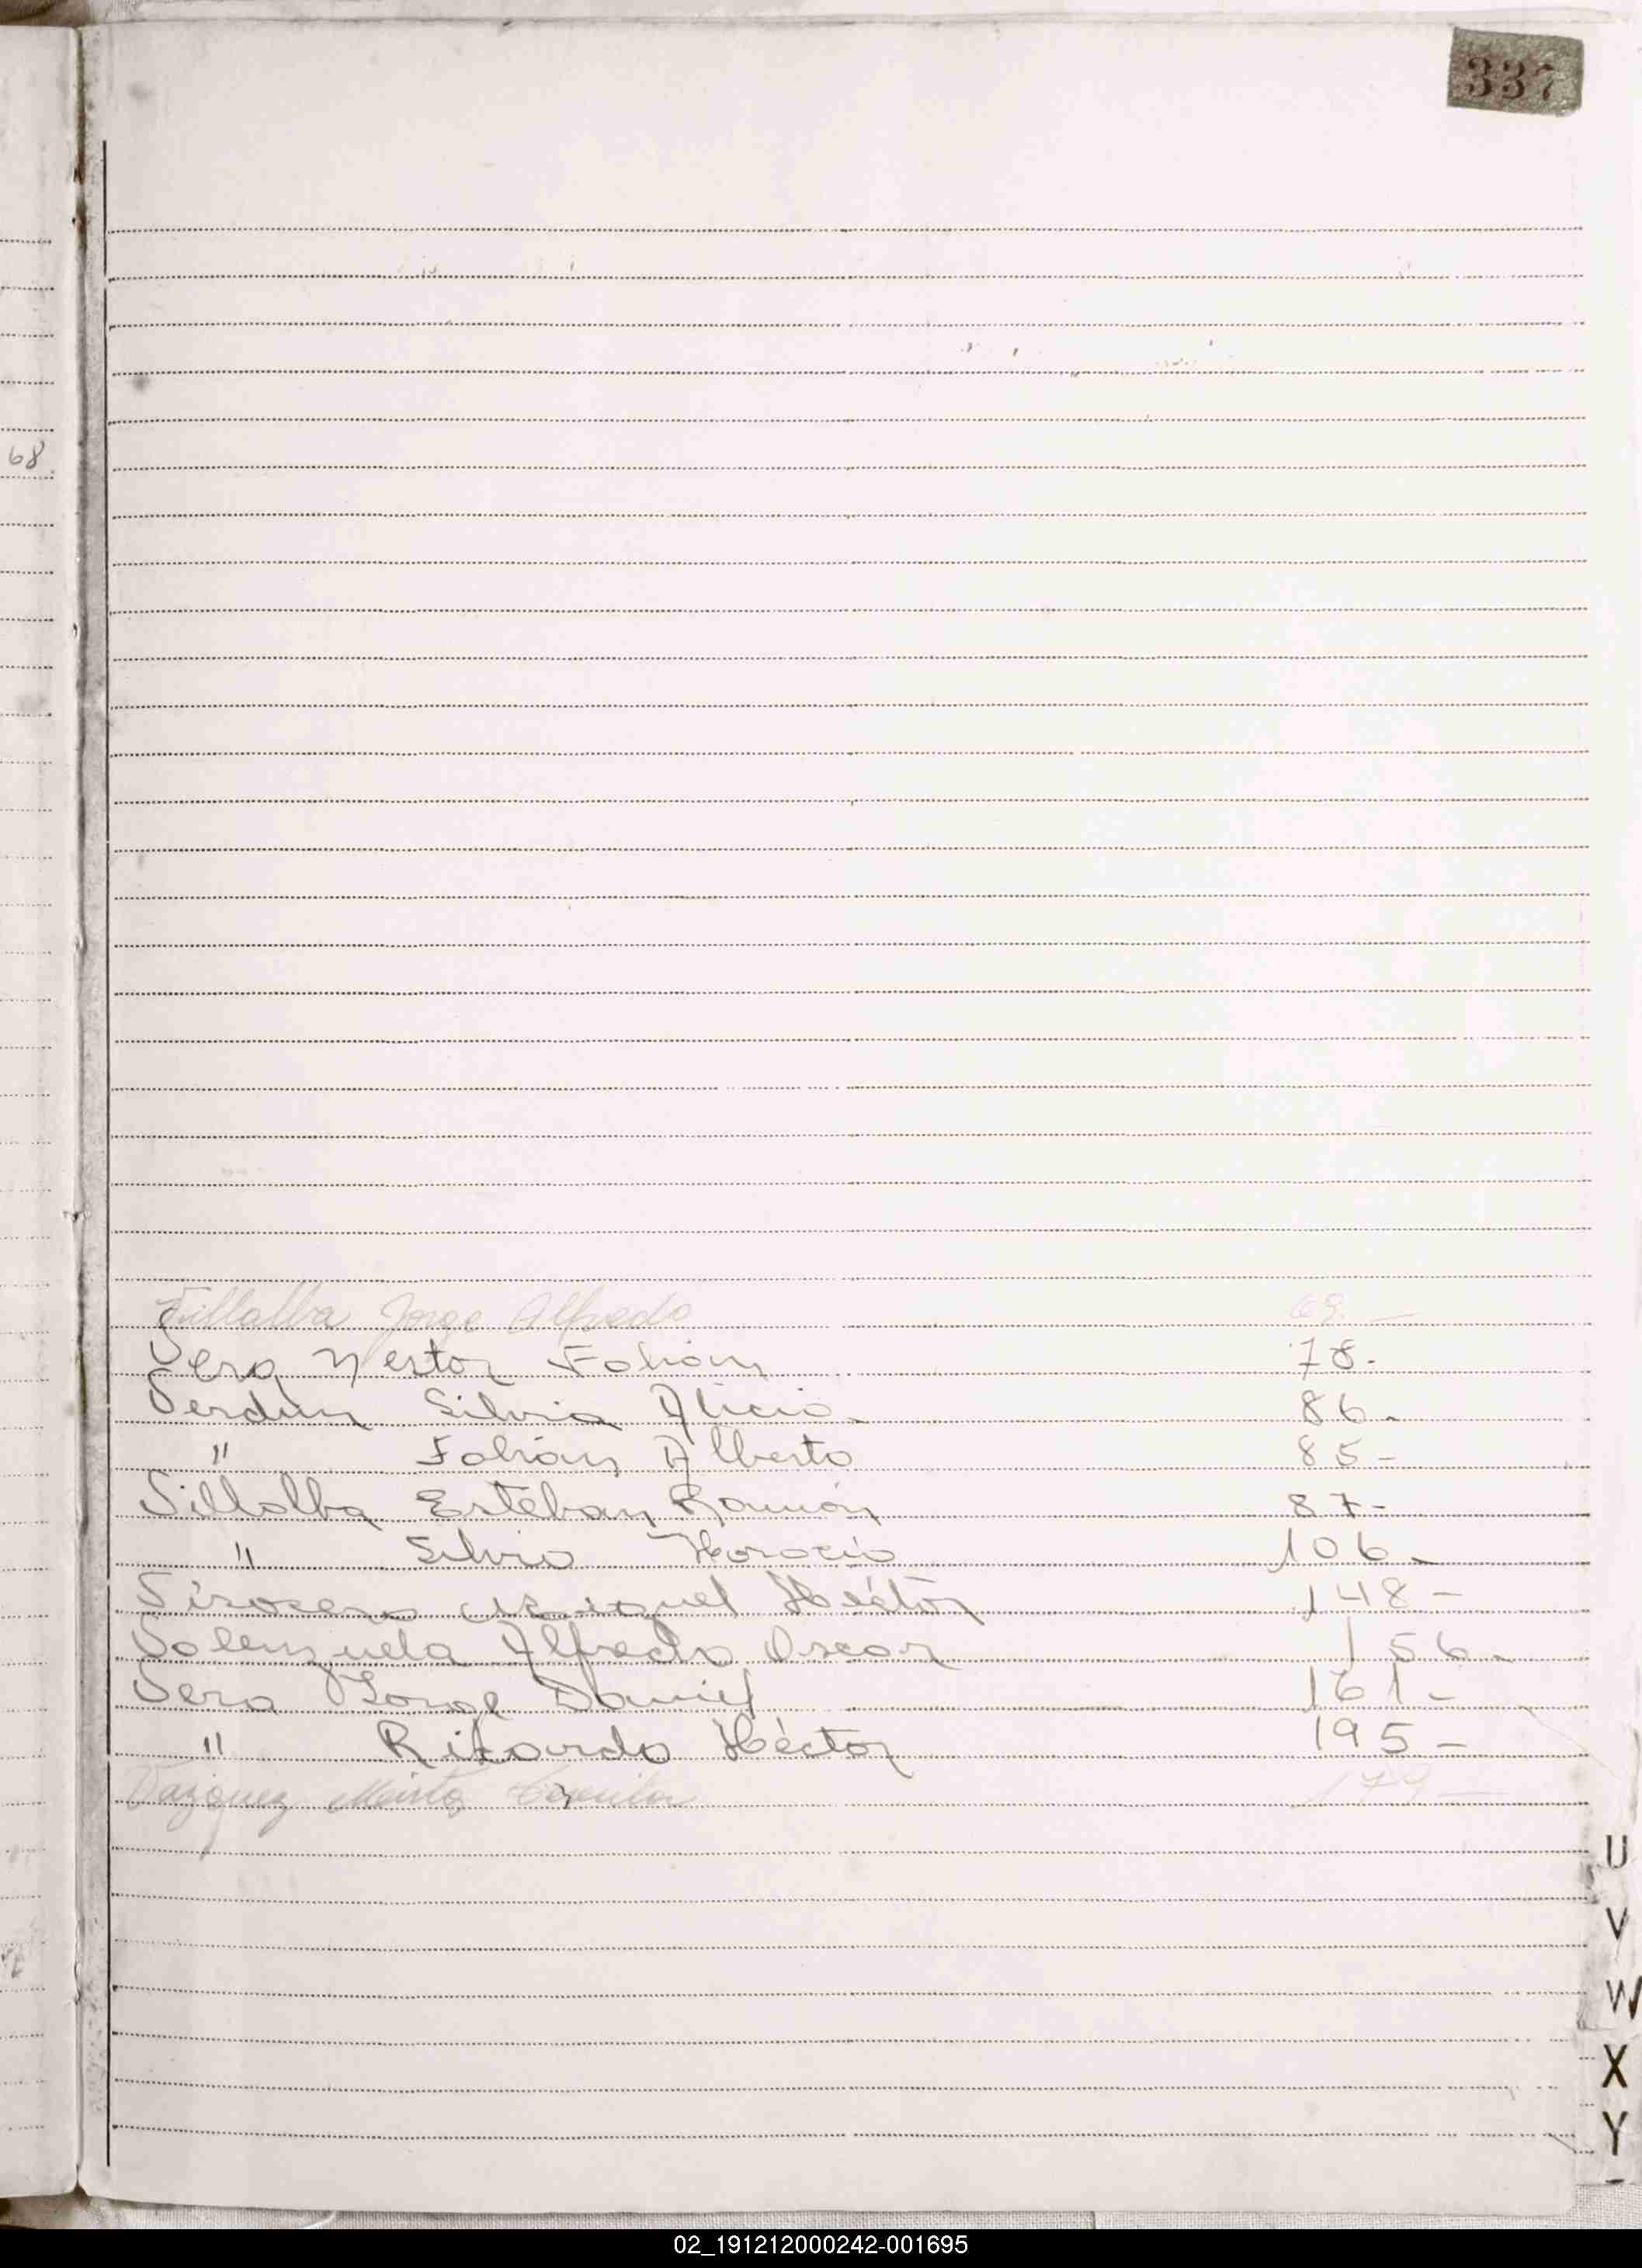 337
68
Villalba Jorge Alfredo 69. —
Vera Nestor Fabián 78.-
Verdun Silvia Alicia. 86.-
" Fabián Alberto 85-
Villalba Esteban Ramón 87-
" Silvio Horacio 106-
Miguel Héctor 148-
Valenzuela Alfredo Oscar 156.
Vera Jorge Daniel 161-
" Ricardo Héctor 195-
Vazquez 179-
U
V
W
X
Y
02_191212000242-001695